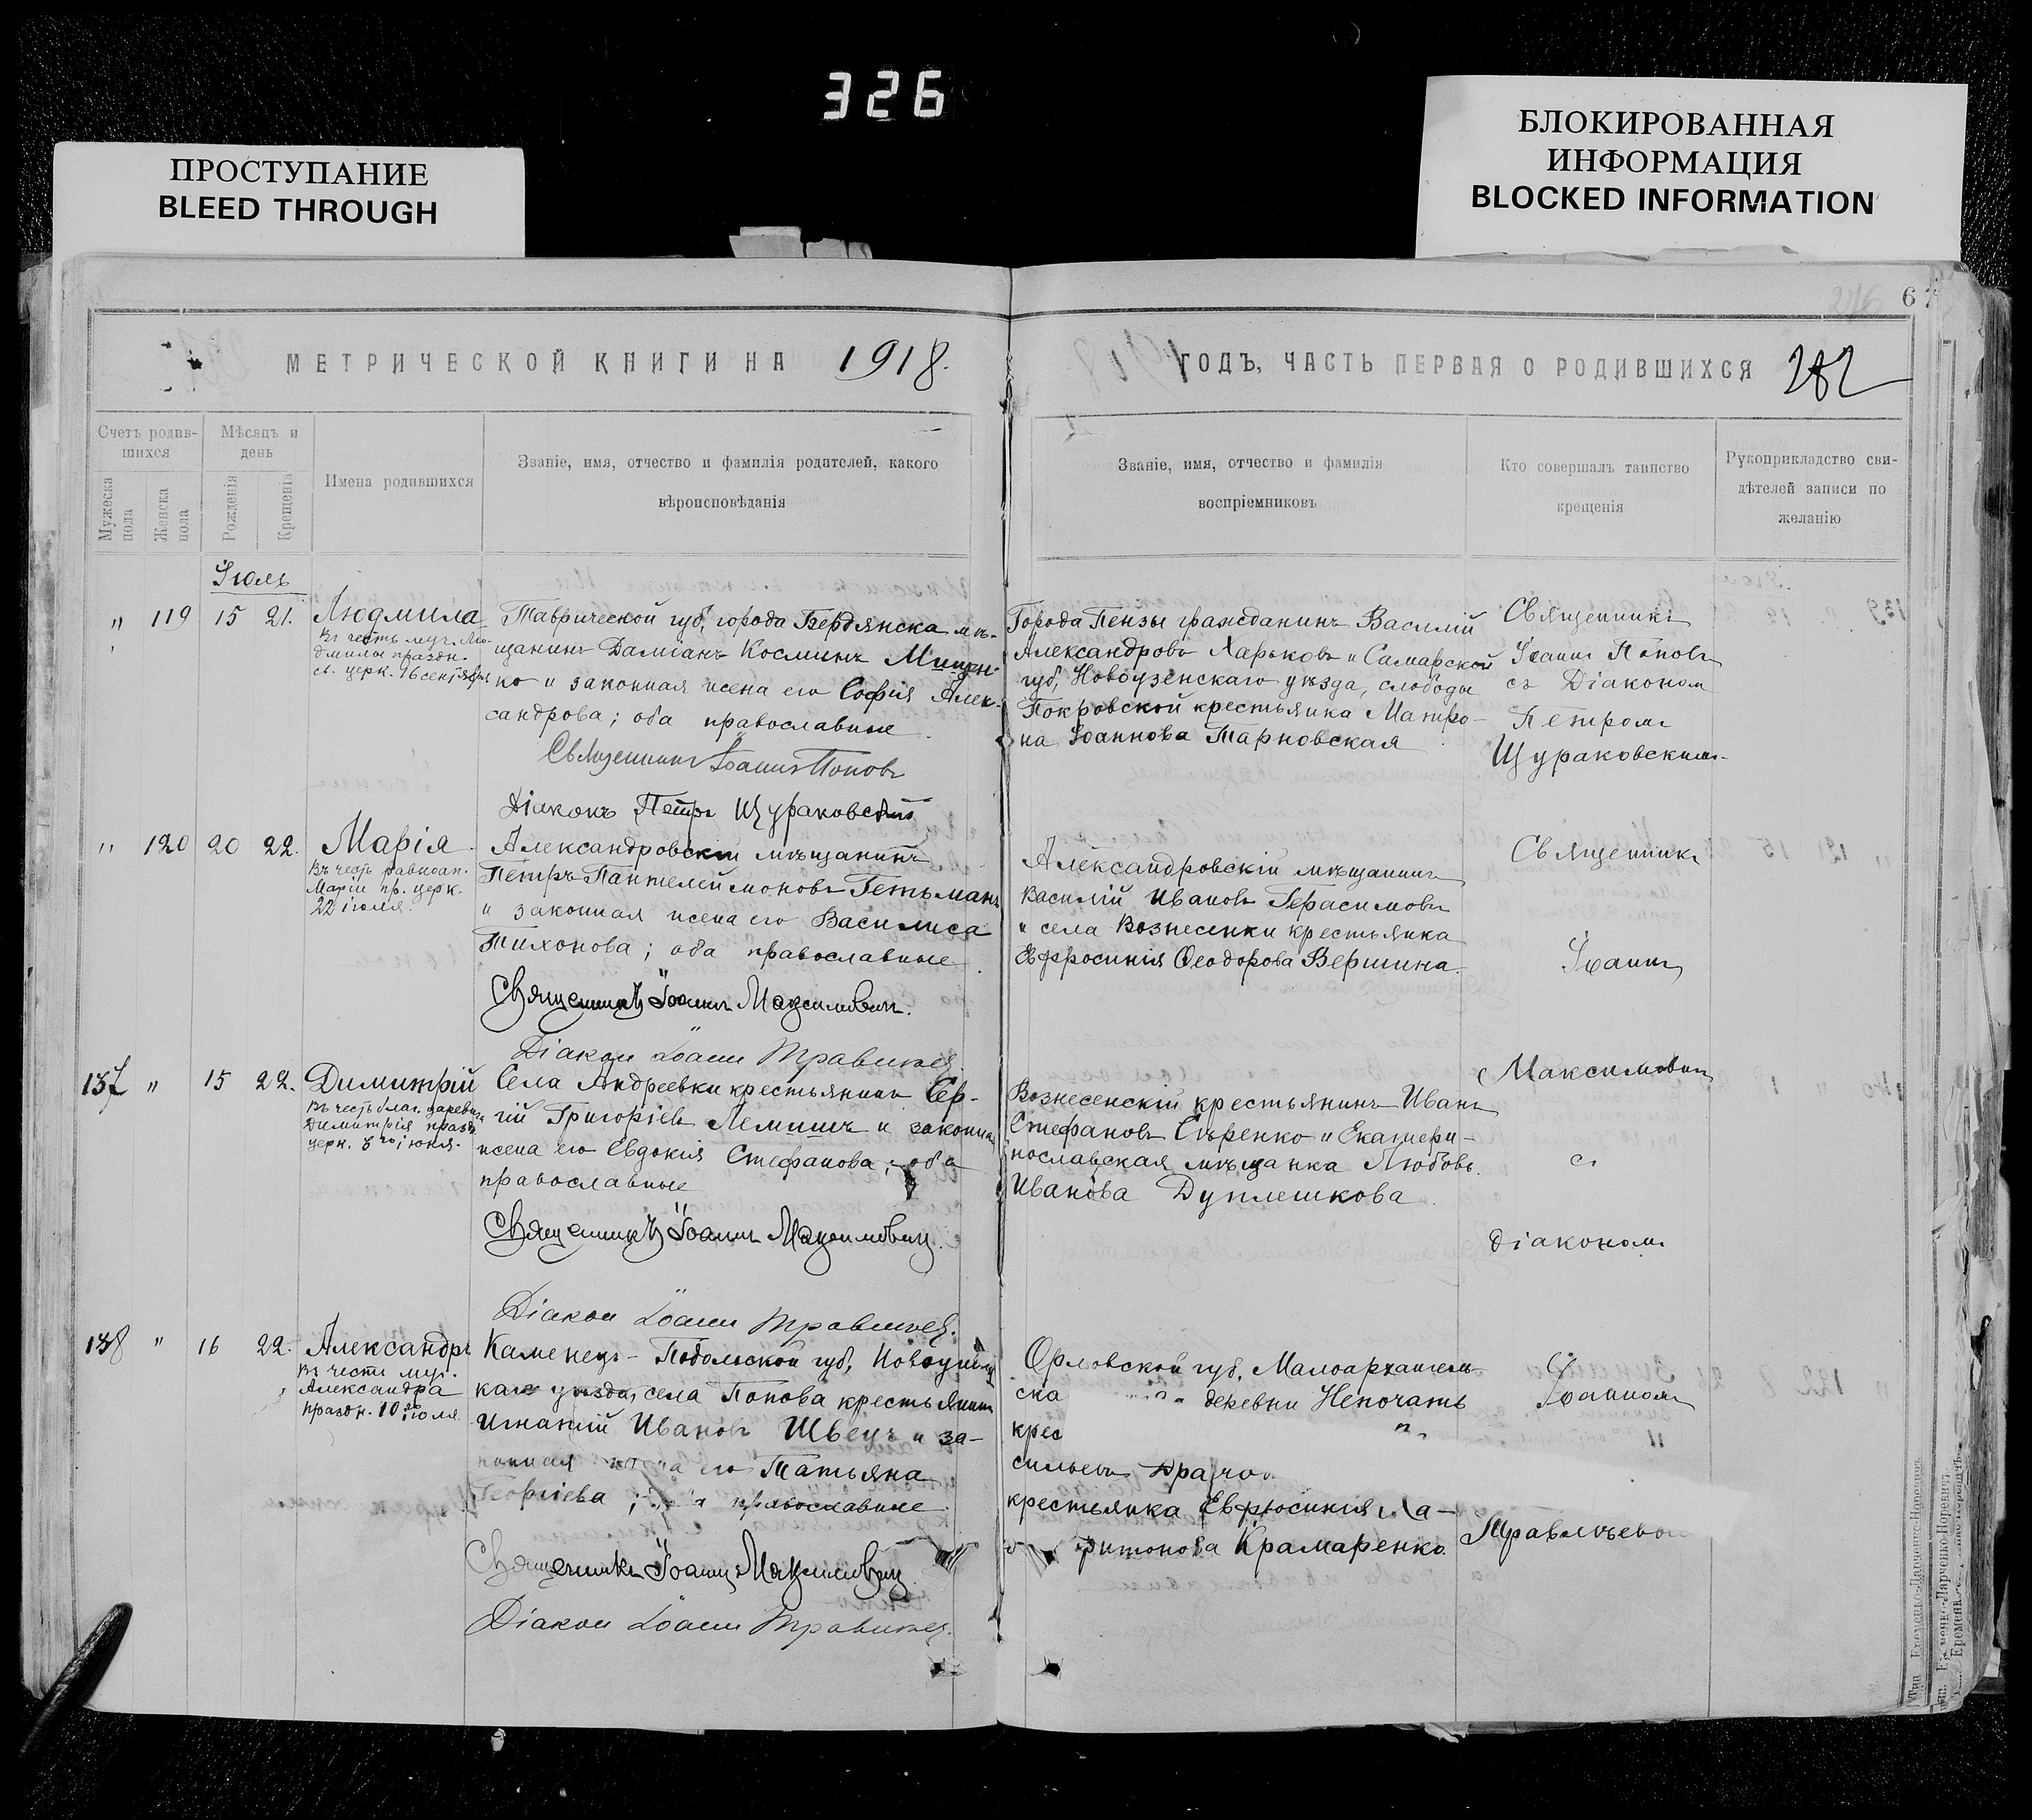 326
ПРОСТУПАНИЕ
BLEED THROUGH
БЛОКИРОВАННАЯ
ИНФОРМАЦИЯ
BLOCKED INFORMATION
67
МЕТРИЧЕСКОЙ КНИГИ НА 1918.
ГОДЪ, ЧАСТЬ ПЕРВАЯ О РОДИВШИХСЯ 282
Счетъ родив-
шихся
Мужеска пола
Женска пола
Мѣсяцъ и
день
Рожденія
Крещенія
Имена родившихся
Званіе, имя, отчество и фамилія родителей, какого
вѣроисповѣданія
Званіе, имя, отчество и фамилія
воспріемниковъ
Кто совершалъ таинство
крещенія
Рукоприкладство сви-
дѣтелей записи по
желанію
Іюль
" 119 15 21. Людмила
Въ честь муч. Лю-
дмилы праздн.
св. церк. 16 сентября
Таврической губ, города Бердянска мѣ-
щанинъ Даміанъ Косминъ Мищен-
ко и законная жена его Софія Алек-
сандрова; оба православные
Священникъ Іоаннъ Поповъ
Діаконъ Петръ Щураковскій
Города Пензы гражданинъ Василій
Александровъ Харьковъ и Самарской
губ, Новоузенскаго уѣзда, слободы
Покровской крестьянка Матро-
на Іоаннова Тарновская
Священникъ
Іоаннъ Поповъ
съ Діаконом
Петромъ
Щураковскимъ
" 120 20 22. Марія
Въ честь равноап.
Маріи пр. церк.
22 іюля.
Александровскій мѣщанинъ
Петръ Пантелеймоновъ Гетьманъ
и законная жена его Василиса
Тихонова; оба православные
Священникъ Іоаннъ Максимовичъ.
Діакон Іоанн Травинъ
Александровскій мѣщанинъ
Василій Ивановъ Герасимовъ
и села Вознесенки крестьянка
Евфросинія Ѳеодорова Вершина.
Священникъ
Іоаннъ
Максимович
съ
діакономъ
Іоанномъ
137 " 15 22. Димитрій
Въ честь благ. царевича
Димитрія праздн.
церк. 3го іюня.
Села Андреевки крестьянинъ Сер-
гій Григоріевъ Лемишъ и законная
жена его Евдокія Стефанова; оба
православные
Священникъ Іоаннъ Максимовичъ.
Вознесенскій крестьянинъ Иванъ
Стефановъ Сѣренко и Екатери-
нославская мѣщанка Любовь
Иванова Дуплешкова.
138 " 16 22. Александръ
Въ честь муч.
Александра
праздн. 10го іюля
Каменецъ-Подольской губ,
уѣзда, села Попова крестьянин
Игнатій Ивановъ Швецъ и за-
его Татьяна
Георгіева; православные.
Священникъ Іоаннъ Максимовичъ
Орловской губ, Малоархангель-
ска деревни
крес
крестьянка Евфросинія Ха-
ритонова Крамаренко.